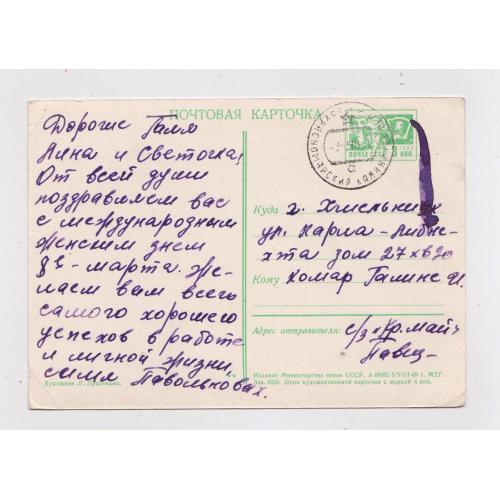 ПОЧТОВАЯ КАРТОЧКА
Дорогие Галя
Анна и Светочка!
От всей души
поздравляем вас
с международным
женским днем
8е - марта. Же-
лаем вам всего
самого хорошего
успехов в работе
и личной жизни,
симя Павольновах.
ПОЧТА СССР
КОП.
Куда г. Хмельницк
ул. Карла-Либкне-
хта дом 27 кв 20
Кому Комар Галине И.
Адрес отправителя: с/з «Кр. май»
Художник Л.
Издание Министерства связи СССР. А 8/VIII-69 г. МТГ.
Зак. 6259. Цена художественной карточки с маркой 4 коп.